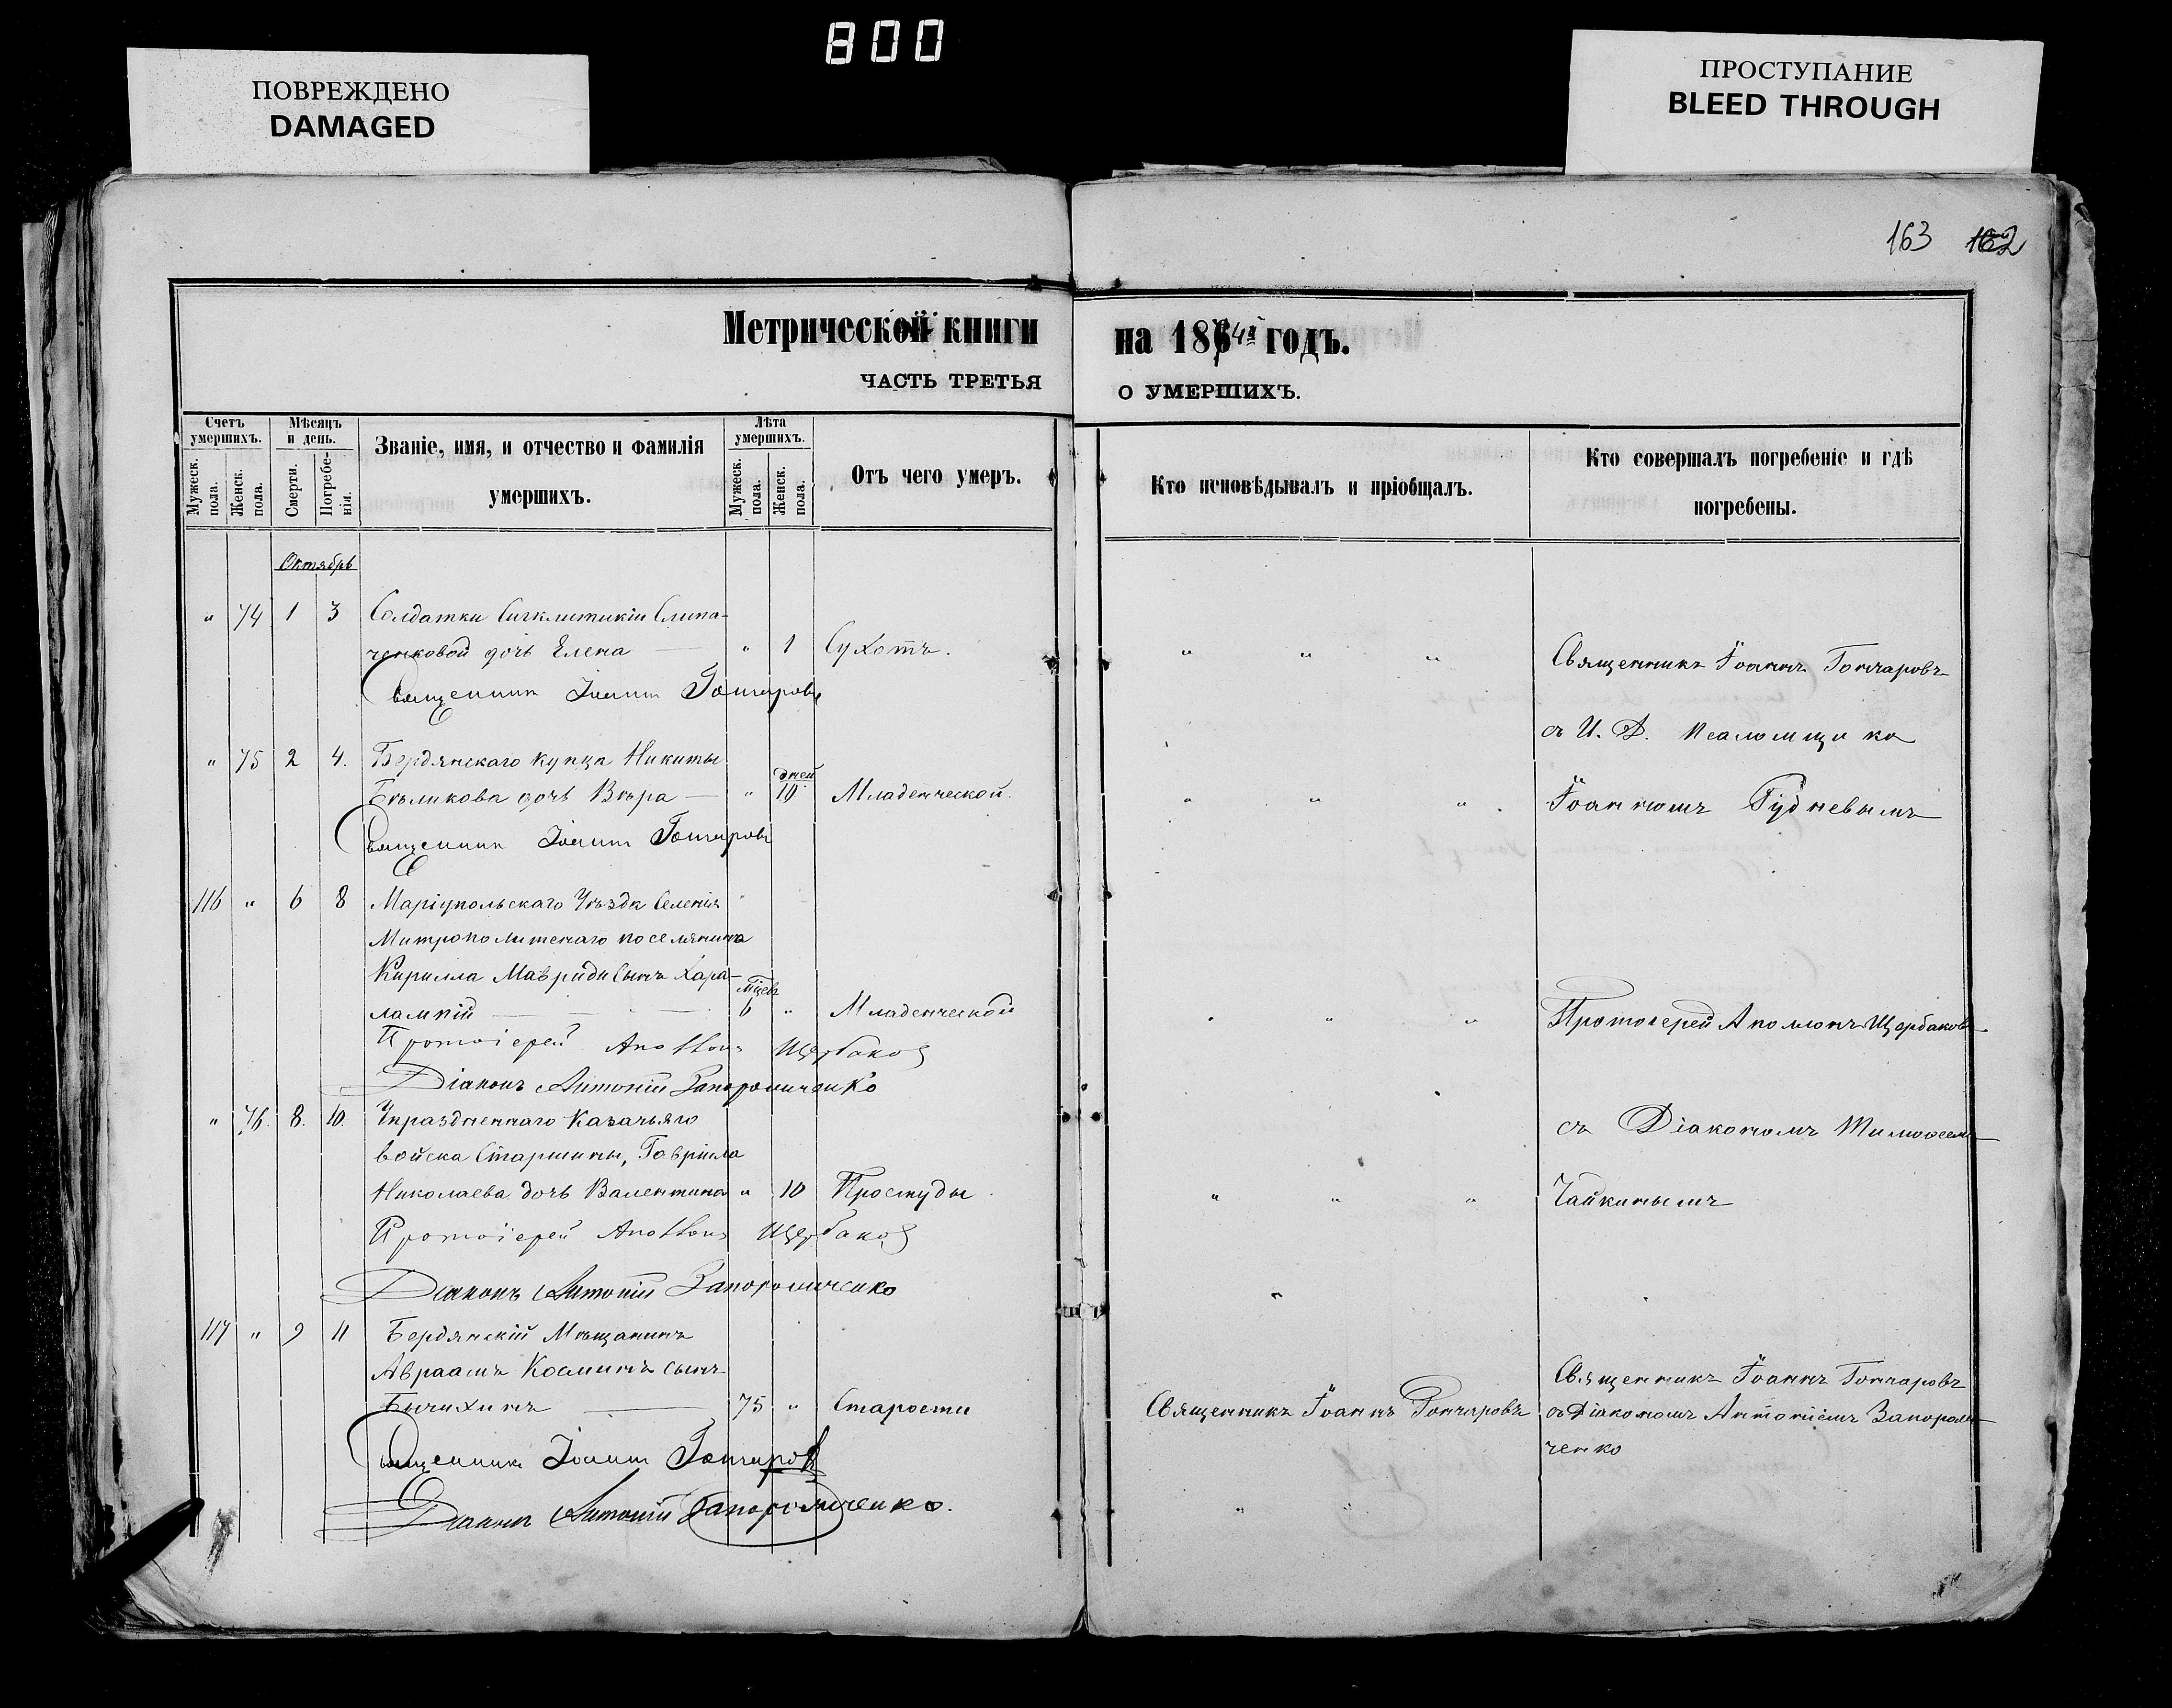 800
ПОВРЕЖДЕНО
DAMAGED
ПРОСТУПАНИЕ
BLEED THROUGH
163 162
Метрической книги
ЧАСТЬ ТРЕТЬЯ
на 1874й годъ.
О УМЕРШИХЪ.
Счетъ умершихъ.
Мужеск. пола.
Женск. пола.
Мѣсяцъ и день.
Смерти.
Погребенія.
Званіе, имя, и отчество и фамилія
умершихъ.
Лѣта умершихъ.
Мужеск. пола.
Женск. пола.
Отъ чего умеръ.
Кто исповѣдывалъ и пріобщалъ.
Кто совершалъ погребеніе и гдѣ
погребены.
Октябрь
" 74 1 3 Солдатки Сигклитикіи Слипа-
ченковой дочь Елена — " 1 Сухотъ. " " "
Священникъ Іоаннъ Гончаровъ
Священникъ Іоаннъ Гончаровъ
съ И. Д. Псаломщика
" 75 2 4. Бердянскаго купца Никиты
Бѣликова дочь Вѣра — " дней 10 Младенческой. " " "
Іоанномъ Рудневымъ
Священникъ Іоаннъ Гончаровъ
116 " 6 8 Маріупольскаго Уѣзда Селенія
Митрополитскаго поселянина
Кирилла Мавриди Сынъ Хара-
лампій — мцевъ 6 " Младенческой " " "
Протоіерей Аполлонъ Щербаковъ
Протоіерей Аполлонъ Щербаков
Діаконъ Антоній
" 76. 8. 10. Упраздненнаго Казачьяго
войска Старшины, Гавріила
съ Діакономъ Тимофеемъ
Николаева дочь Валентина " 10 Простуды " " "
Чайкинымъ
Протоіерей Аполлонъ Щербаков
Діаконъ Антоній
117 " 9 11 Бердянскій Мѣщанинъ
Авраамъ Косминъ сынъ
Бычихинъ — 75 " Старости
Священникъ Іоаннъ Гончаровъ
Священникъ Іоаннъ Гончаровъ
съ Діакономъ Антоніемъ
ченко
Священникъ Іоаннъ Гончаров
Діаконъ Антоній